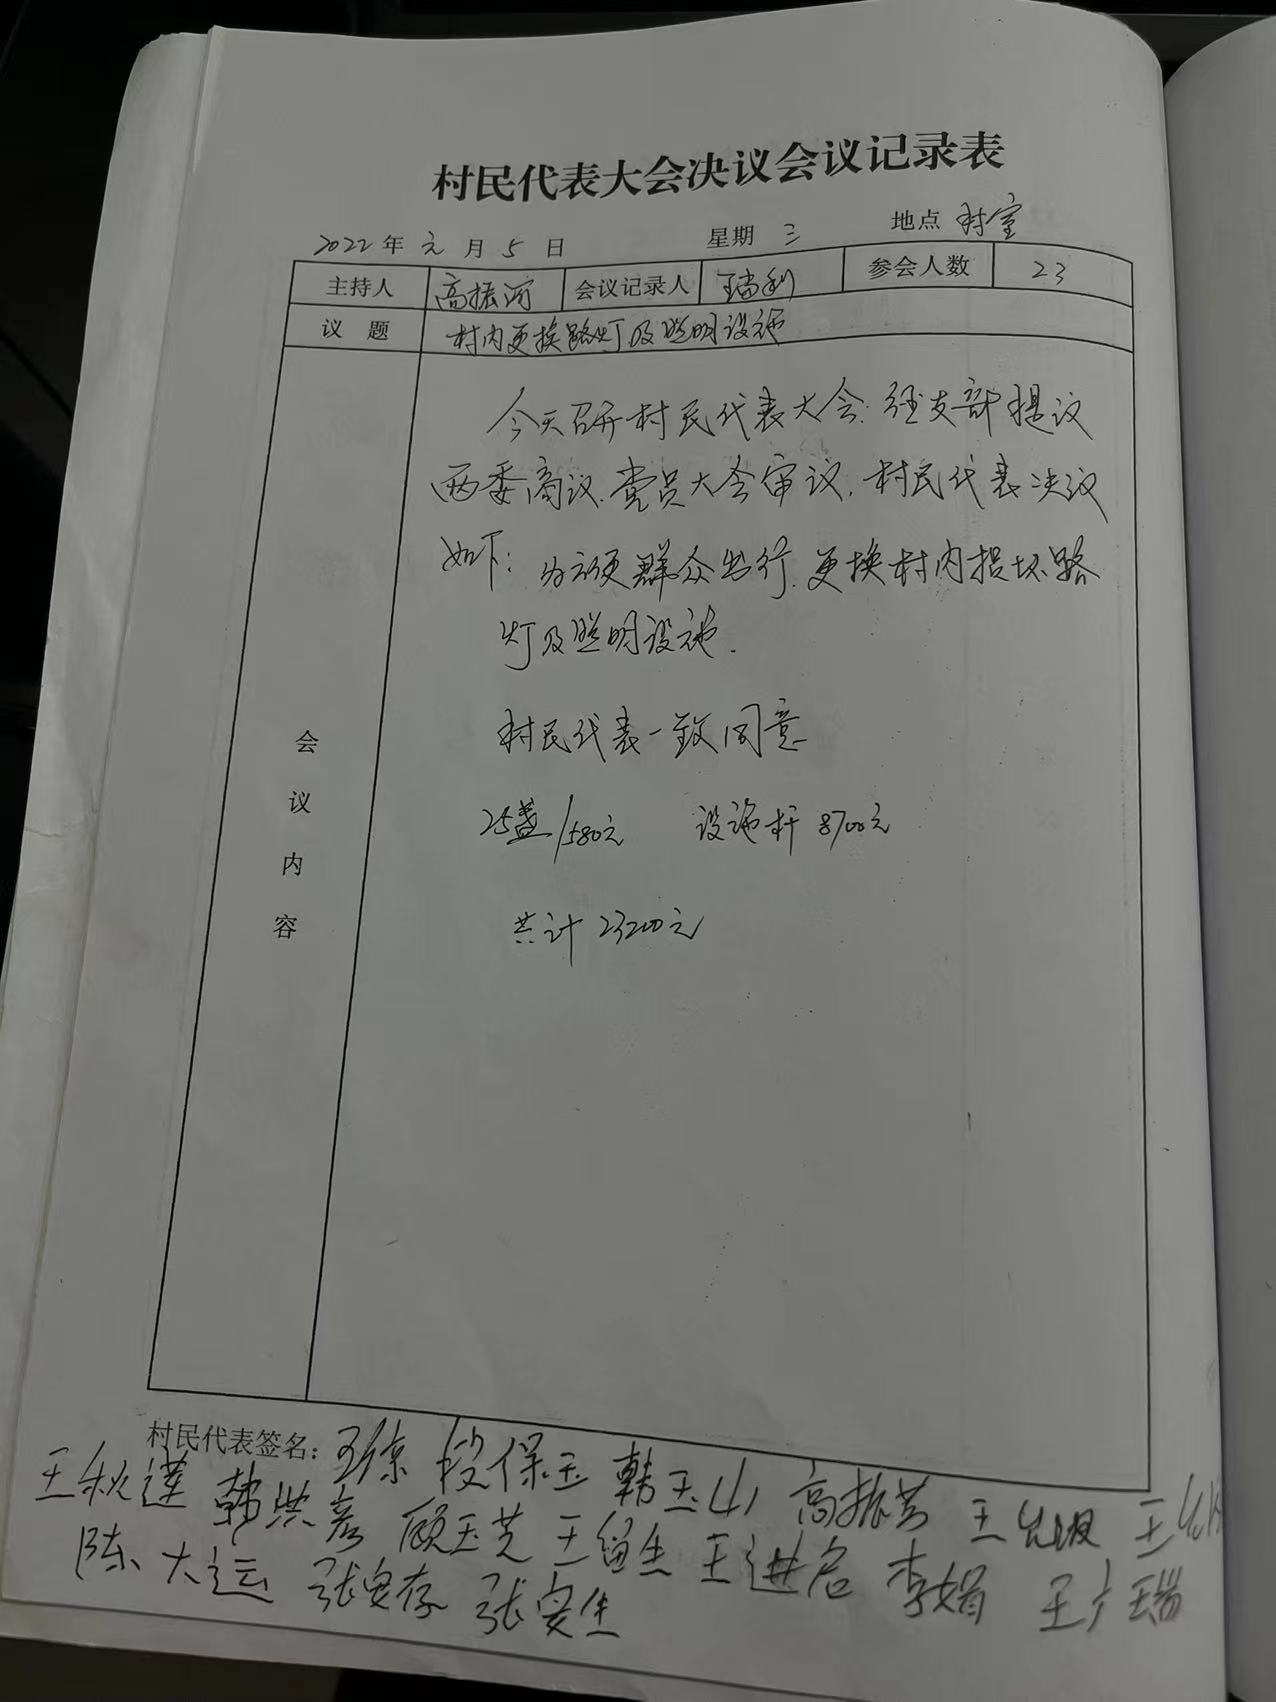 村民代表大会决议会议记录表
2022年元月5日 星期三 地点 村室
主持人 高振河 会议记录人 王瑞利 参会人数 23
议题 村内更换路灯及照明设施
会议内容
今天召开村民代表大会.经支部提议
两委商议.党员大会审议.村民代表决议
如下:为方便群众出行.更换村内损坏路
灯及照明设施.
村民代表一致同意
25盏/580元 设施杆8700元
共计23200元
村民代表签名: 段保玉 韩玉山 高振芳
王秋莲 韩洪彦 顾玉芝 王留生 王进启 李娟 王广瑞
陈大运 张安存 张安生